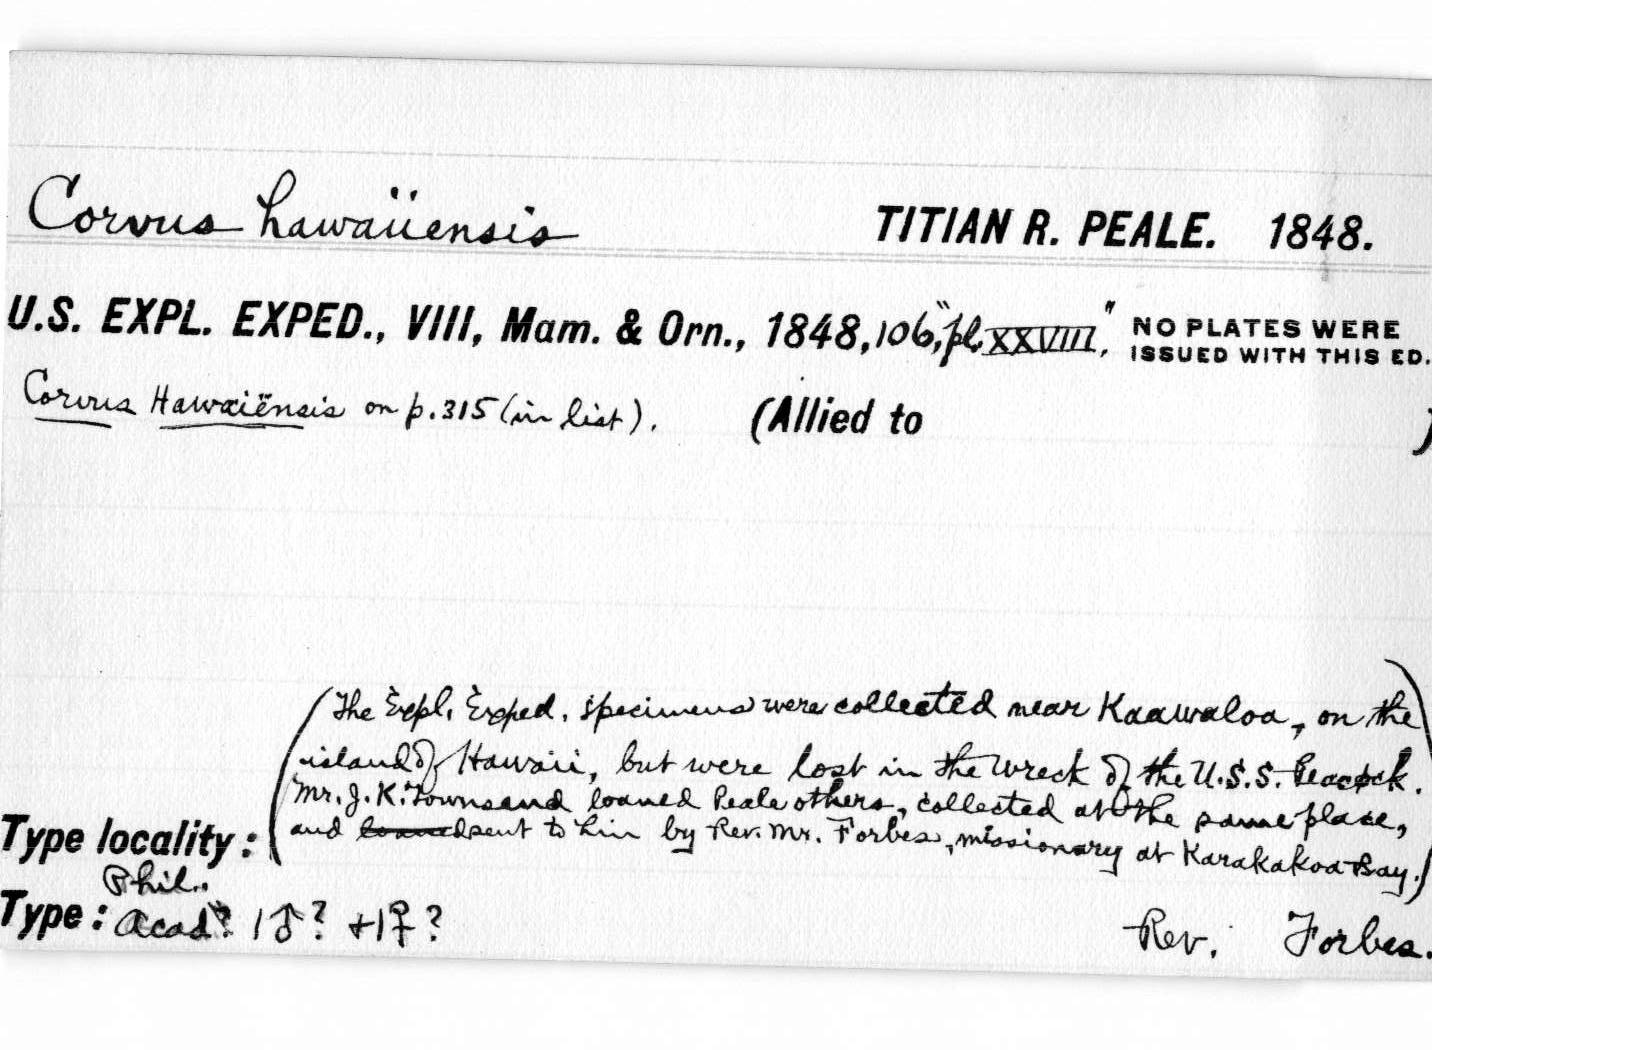 Corvus hawaïiensis TITIAN R. PEALE. 1848.
U.S. EXPL. EXPED., VIII, Mam. & Orn., 1848, 106, "pl. XXVIII," NO PLATES WERE ISSUED WITH THIS ED.
Corvus Hawaiiënsis on p. 315 (in list). (Allied to )
(The Expl. Exped. specimens were collected near Kaawaloa, on the
island of Hawaii, but were lost in the wreck of the U.S.S. Peacock.
Mr. J. K. Townsend loaned Peale others, collected at the same place,
and loaned sent to him by Rev. Mr. Forbes, missionary at Karakakoa Bay.)
Type locality:
Phil.
Type: Acad? 1♂? + 1♀? Rev. Forbes.